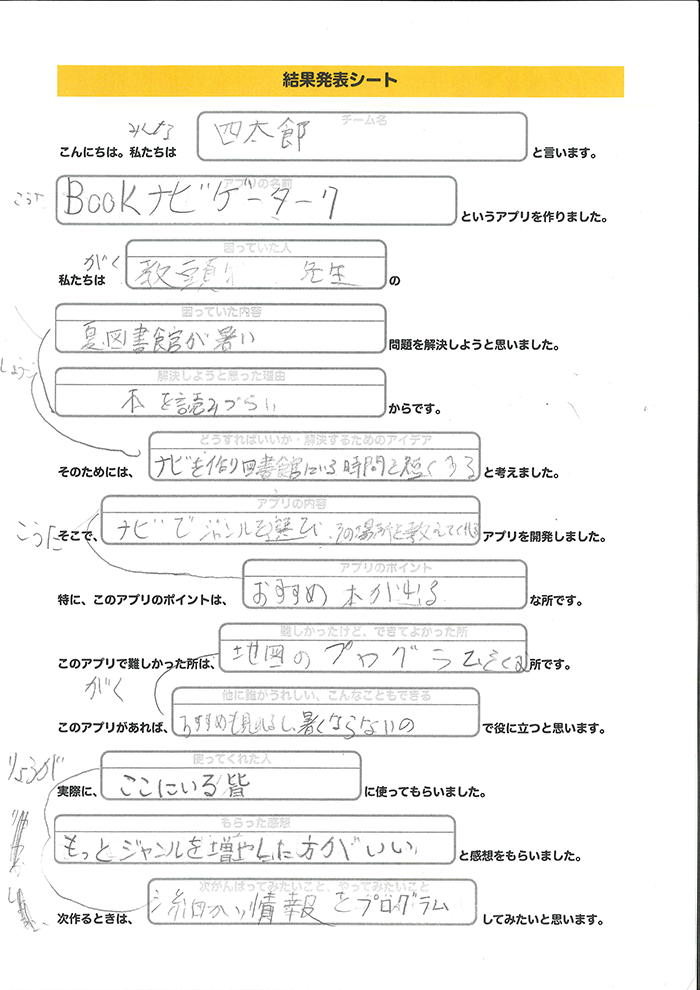 結果発表シート
みんな
チーム名
こんにちは。私たちは 四太郎 と言います。
アプリの名前
こうた BooKナビゲーターク というアプリを作りました。
がく
困っていた人
私たちは 教頭 先生 の
困っていた内容
夏図書館が暑い 問題を解決しようと思いました。
解決しようと思った理由
本を読みづらい からです。
どうすればいいか・解決するためのアイデア
そのためには、 ナビを作り図書館にいる時間を短くする と考えました。
アプリの内容
こうた そこで、 ナビでジャンルを選び、その場所を教えてくれる アプリを開発しました。
アプリのポイント
特に、このアプリのポイントは、 おすすめ本が出る な所です。
難しかったけど、できてよかった所
このアプリで難しかった所は、 地図のプログラム 所です。
がく
他に誰がうれしい、こんなこともできる
このアプリがあれば、 おすすめも見れるし、暑くならないの で役に立つと思います。
使ってくれた人
りょうが 実際に、 ここにいる皆 に使ってもらいました。
もらった感想
もっとジャンルを増やした方がいい と感想をもらいました。
次がんばってみたいこと、やってみたいこと
次作るときは、 細かい情報をプログラム してみたいと思います。